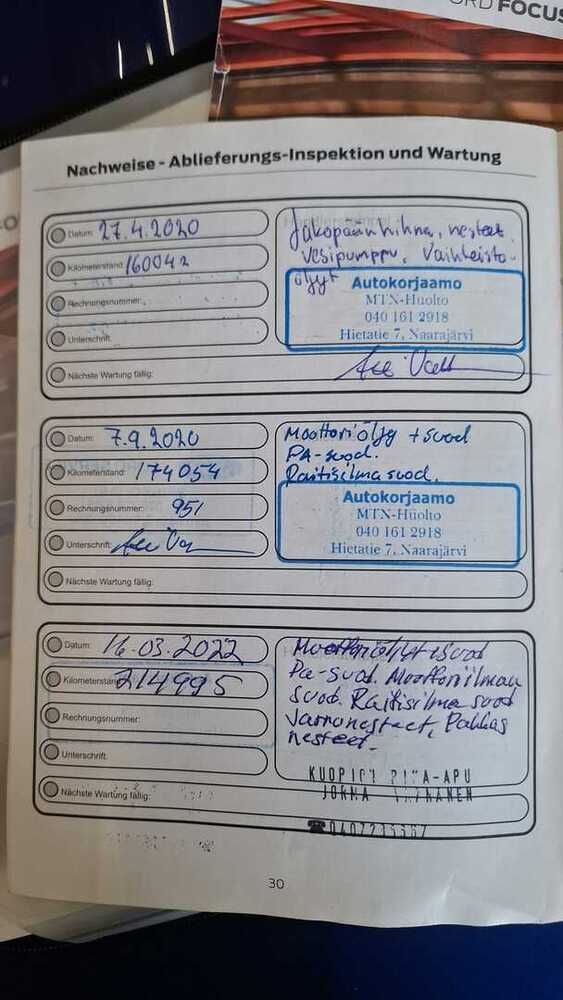 FORD FOCUS
Nachweise - Ablieferungs-Inspektion und Wartung
Datum: 27.4.2020
Kilometerstand: 160042
Rechnungsnummer:
Unterschrift:
Nächste Wartung fällig:
Jakopäänhihna, nesteet,
vesipumppu, vaihteisto-
öljyt
Autokorjaamo
MTN-Huolto
040 161 2918
Hietatie 7, Naarajärvi
Datum: 7.9.2020
Kilometerstand: 174054
Rechnungsnummer: 951
Unterschrift:
Nächste Wartung fällig:
Moottoriöljy + suod
PA-suod.
Raitisilmasuod.
Autokorjaamo
MTN-Huolto
040 161 2918
Hietatie 7, Naarajärvi
Datum: 16.03.2022
Kilometerstand: 214995
Rechnungsnummer:
Unterschrift:
Nächste Wartung fällig:
Moottoriöljyt + suod
Pa-suod. Moottoriilman
suod. Raitisilma suod
Jarrunesteet, Pakkas
nesteet.
KUOPION -APU
JORMA
30